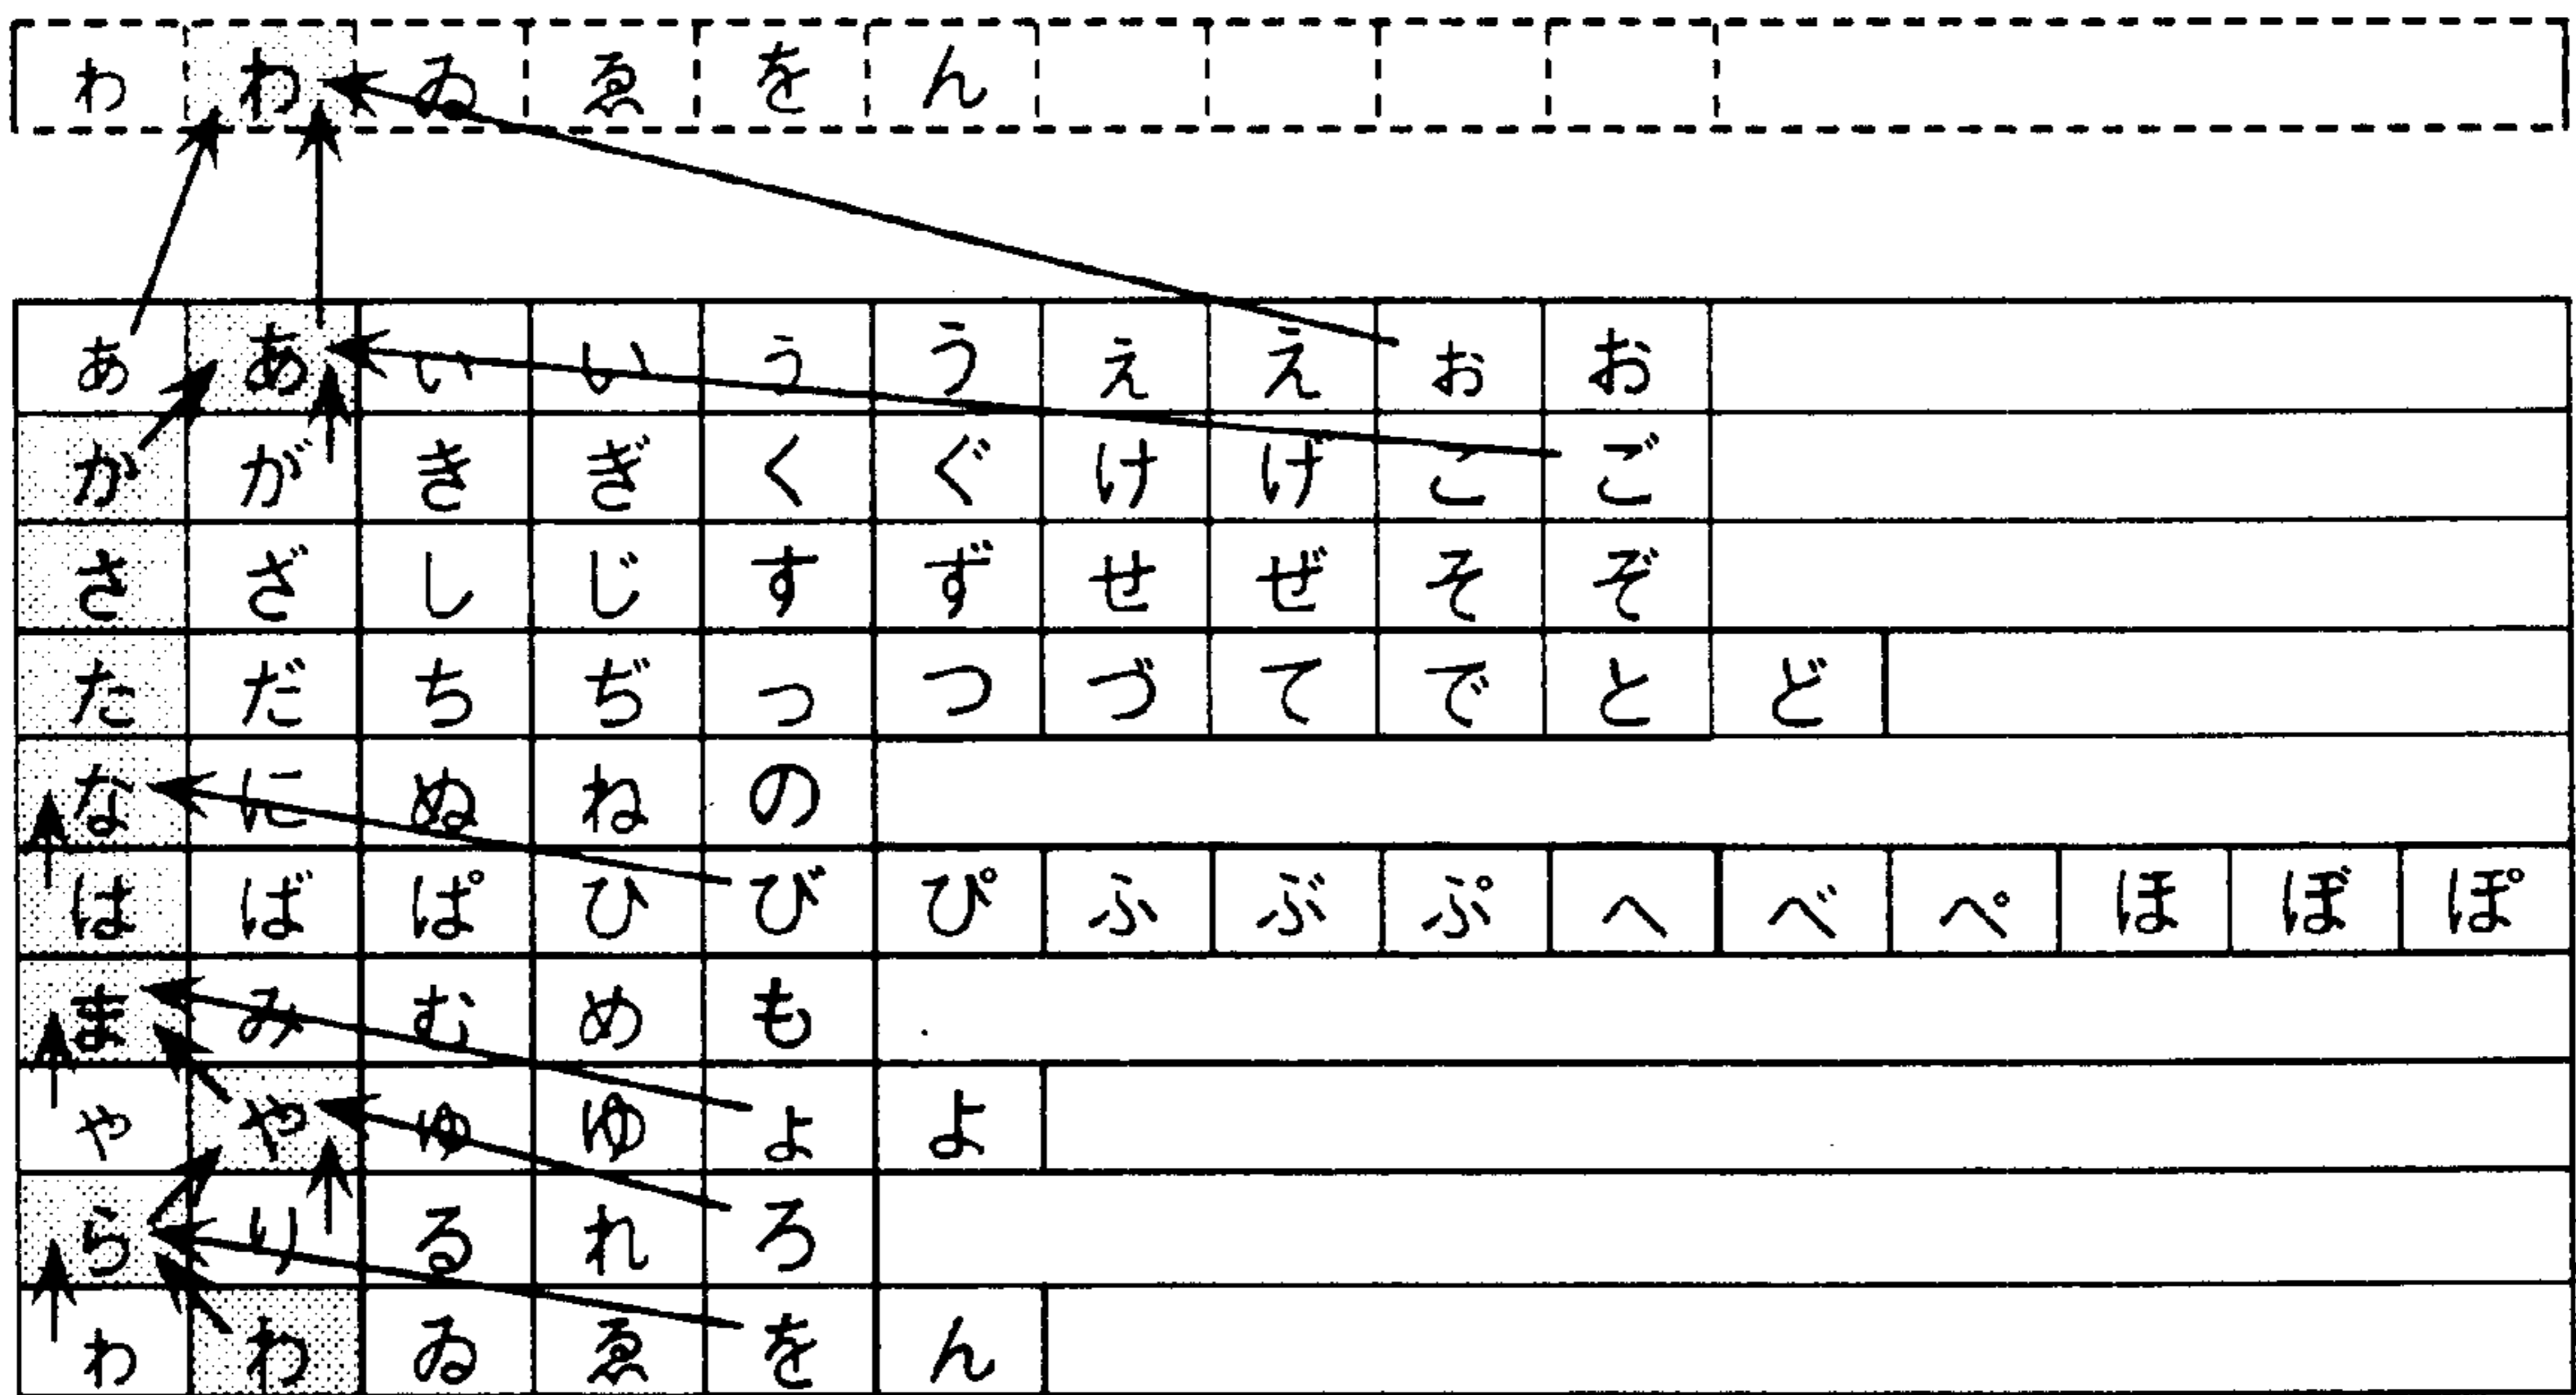 ゎ わ ゐ ゑ を ん
ぁ あ ぃ い ぅ う ぇ え ぉ お
か が き ぎ く ぐ け げ こ ご
さ ざ し じ す ず せ ぜ そ ぞ
た だ ち ぢ っ つ づ て で と ど
な に ぬ ね の
は ば ぱ ひ び ぴ ふ ぶ ぷ へ べ ぺ ほ ぼ ぽ
ま み む め も
ゃ や ゅ ゆ ょ よ
ら り る れ ろ
ゎ わ ゐ ゑ を ん